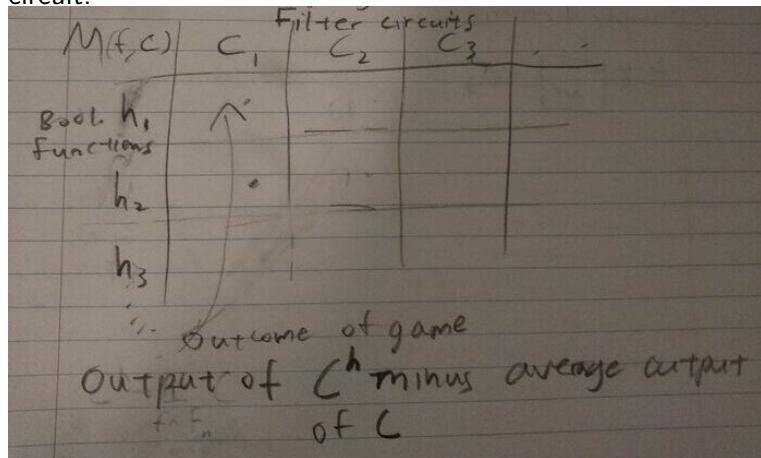 circuit.
Filter circuits
M(f,C) C₁ C₂ C₃ . . .
Bool. h₁
functions
h₂
h₃
outcome of game
Output of Cʰ minus average output
of C